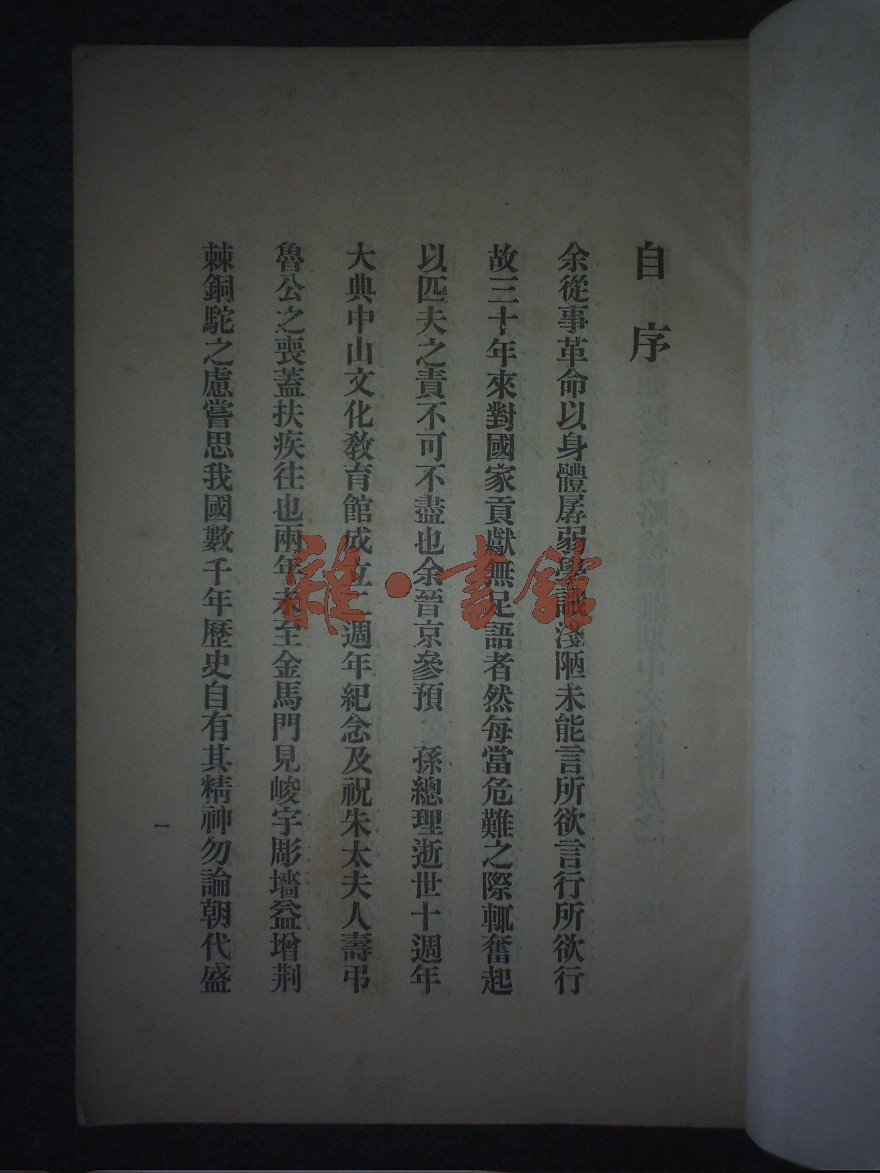 自序
余從事革命以身體孱弱學識淺陋未能言所欲言行所欲行
故三十年來對國家貢獻無足語者然每當危難之際輒奮起
以匹夫之責不可不盡也余晉京參預　孫總理逝世十週年
大典中山文化教育館成立二週年紀念及祝朱太夫人壽弔
魯公之喪蓋扶疾往也兩年未至金馬門見峻宇彫墻益增荆
棘銅駝之慮嘗思我國數千年歷史自有其精神勿論朝代盛
一
雜·書館